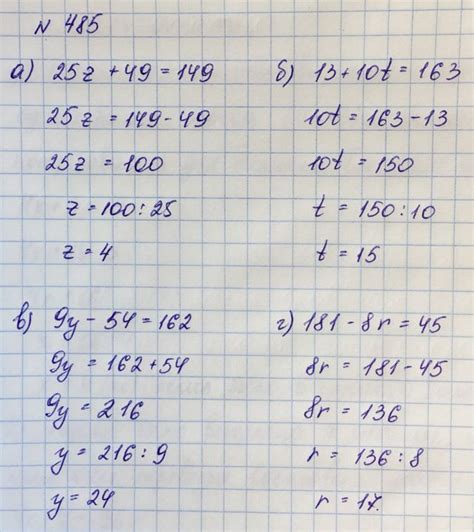 № 485
а) 25z + 49 = 149
25z = 149 - 49
25z = 100
z = 100 : 25
z = 4
б) 13 + 10t = 163
10t = 163 - 13
10t = 150
t = 150 : 10
t = 15
в) 9y - 54 = 162
9y = 162 + 54
9y = 216
y = 216 : 9
y = 24
г) 181 - 8r = 45
8r = 181 - 45
8r = 136
r = 136 : 8
r = 17.